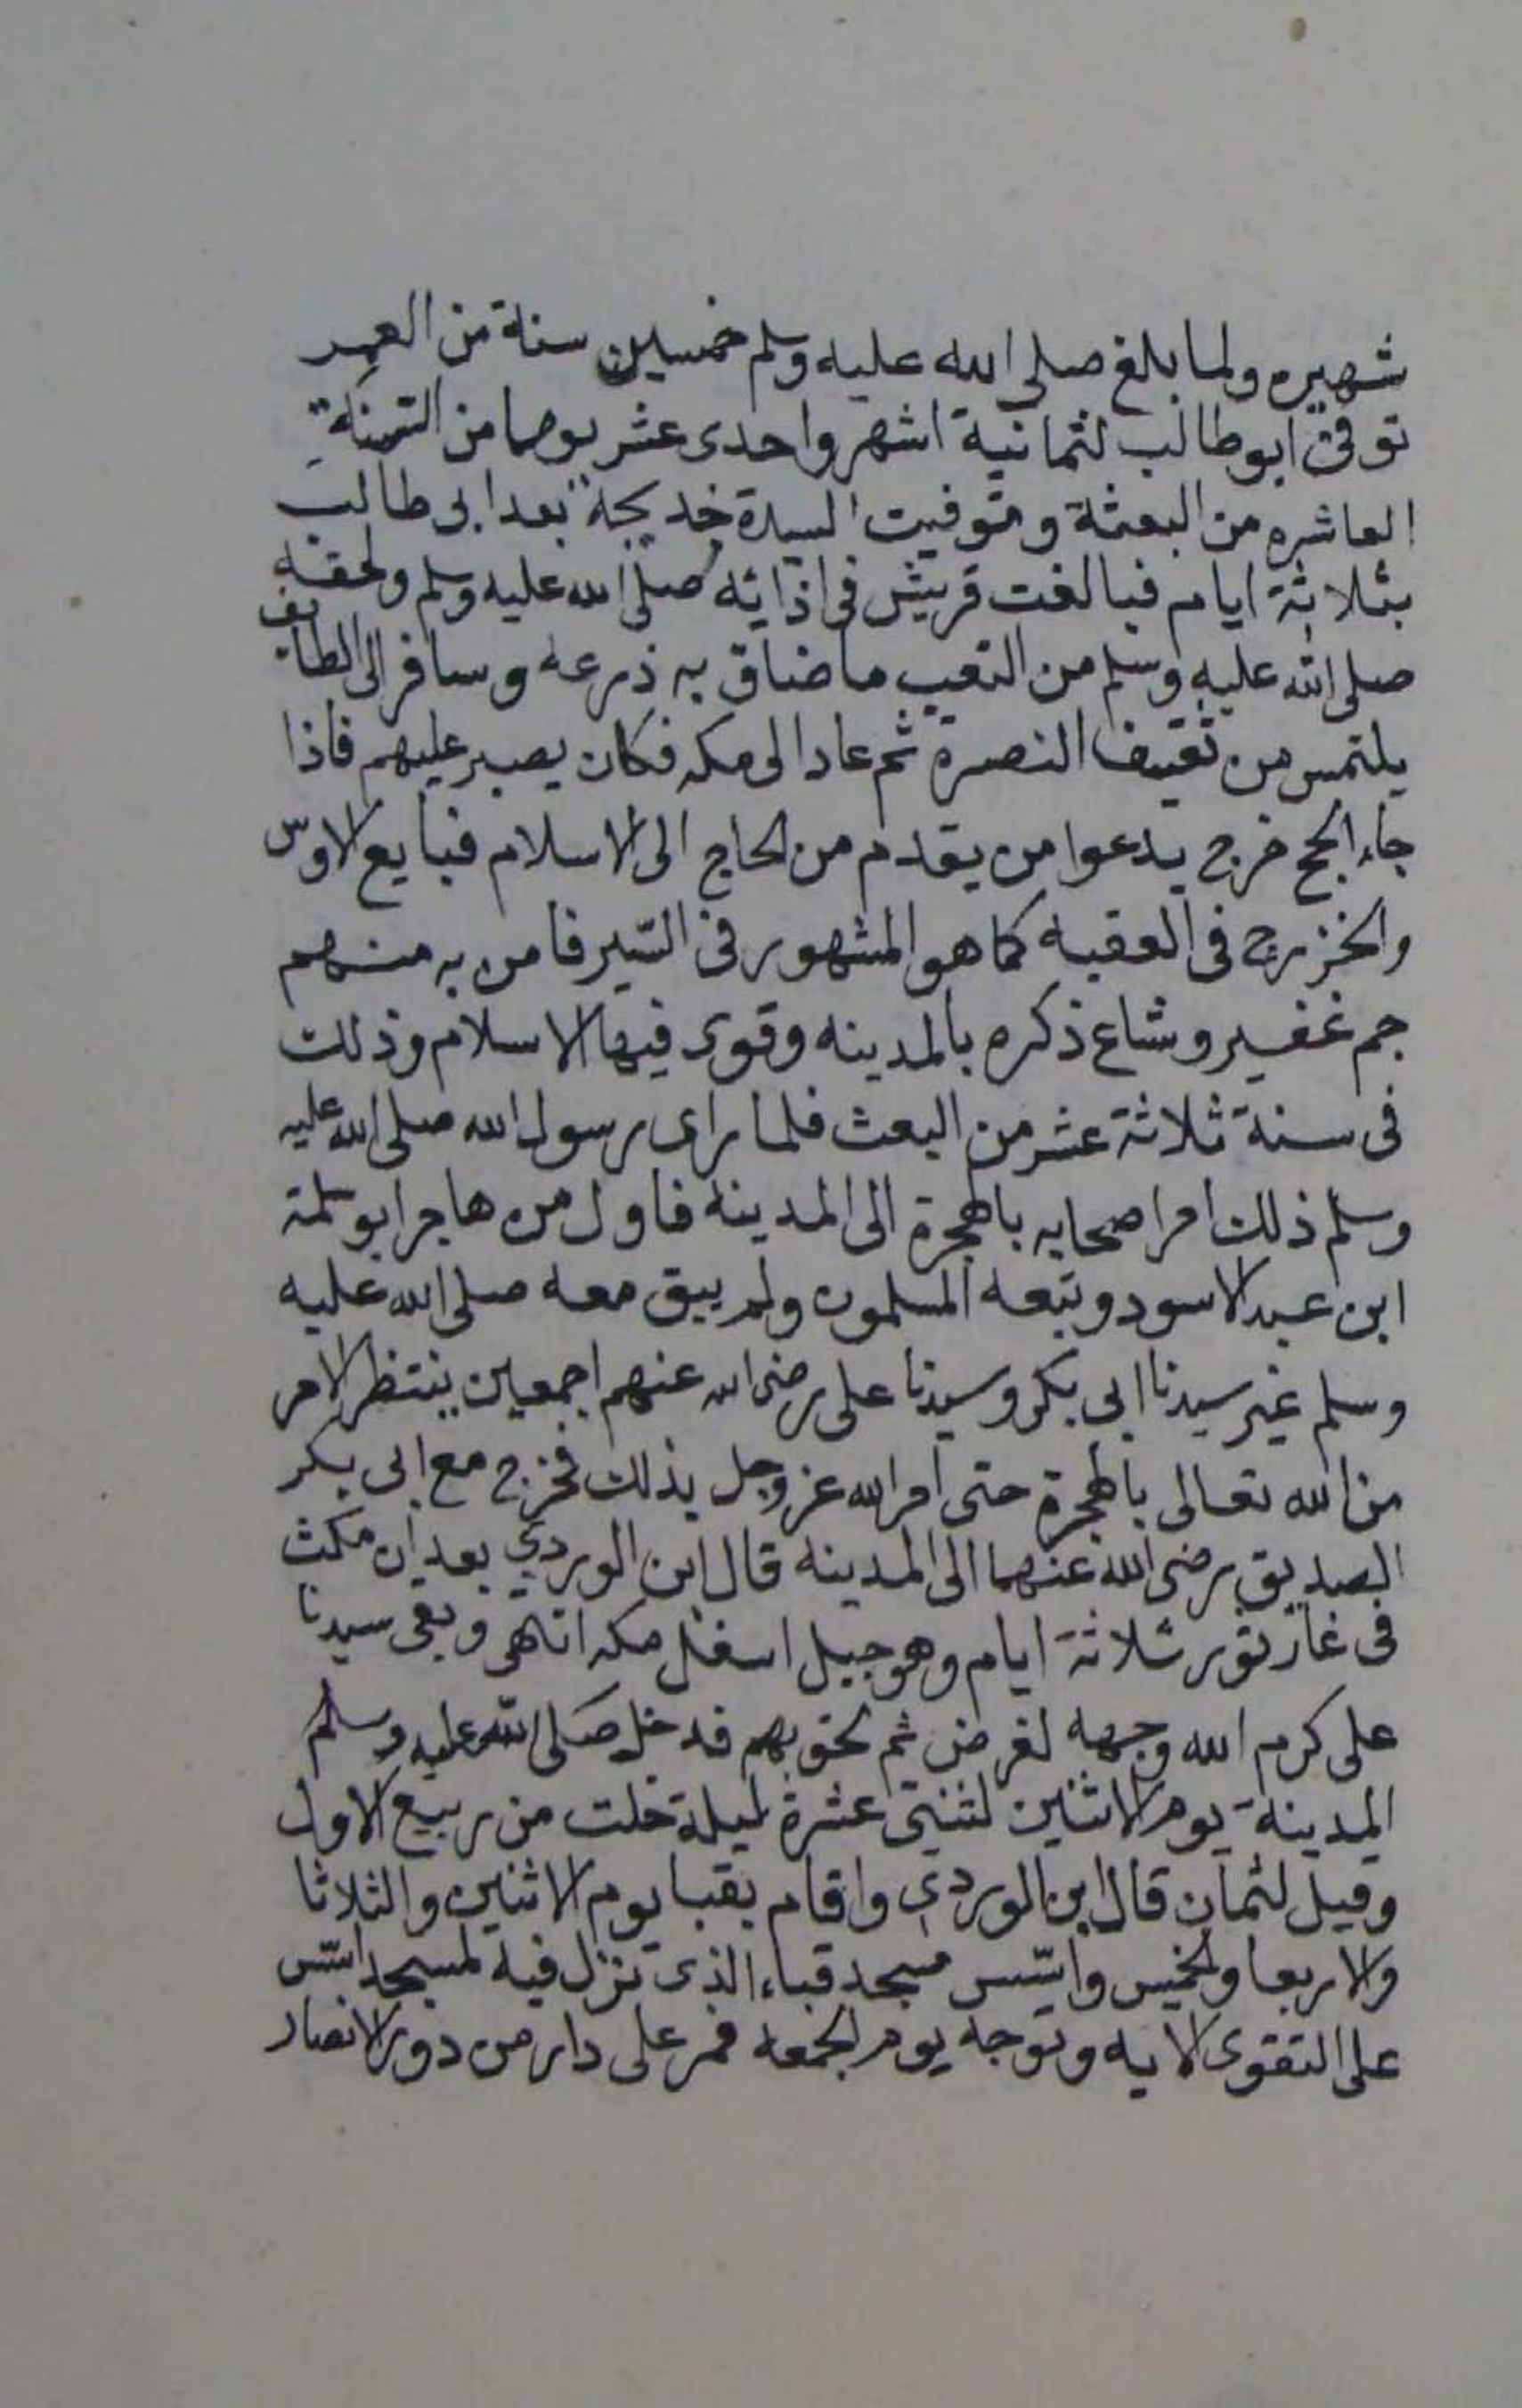 شهيره ولما بلغ صلى الله عليه وسلم خمسين سنة من العمر
توفى ابو طالب لثمانية اشهر واحدى عشر يوما من السنة
العاشره من البعثة وتوفيت السيدة خديجة بعد ابى طالب
بثلاثة ايام فبالغت قريش فى اذايته صلى الله عليه وسلم ولحقه
صلى الله عليه وسلم من التعب ما ضاق به ذرعه وسافر الى الطائف
يلتمس من ثقيف النصرة ثم عاد الى مكه فكان يصبر عليهم فاذا
جاء الحج خرج يدعوا من يقدم من الحاج الى الاسلام فبايع الاوس
والخزرج فى العقبه كما هو المشهور فى السّير فامن به منهم
جم غفير وشاع ذكره بالمدينه وقوى فيها الاسلام وذلك
فى سنة ثلاثة عشر من البعث فلما راى رسول الله صلى الله عليه
وسلم ذلك امر اصحابه بالهجرة الى المدينة فاول من هاجر ابو سلمة
ابن عبد الاسود وتبعه المسلمون ولم يبق معه صلى الله عليه
وسلم غير سيدنا ابى بكر وسيدنا على رضى الله عنهم اجمعين ينتظر الامر
من الله تعالى بالهجرة حتى امر الله عز وجل بذلك فخرج مع ابى بكر
الصديق رضى الله عنهما الى المدينه قال ابن الوردي بعد ان مكث
فى غار ثور ثلاثة ايام وهو جبل اسفل مكه انتهى وبقى سيدنا
على كرم الله وجهه لغرض ثم لحق بهم فدخل صَلى اللّه عليه وسلم
المدينة يوم الاثنين لثنتى عشرة ليلة خلت من ربيع الاول
وقيل لثمان قال ابن الوردي واقام بقبا يوم الاثنين والثلاثا
والاربعا والخميس واسّس مسجد قباء الذى نزل فيه لمسجد اسّس
على التقوى الايه وتوجه يوم الجمعه فمر على دار من دور الانصار